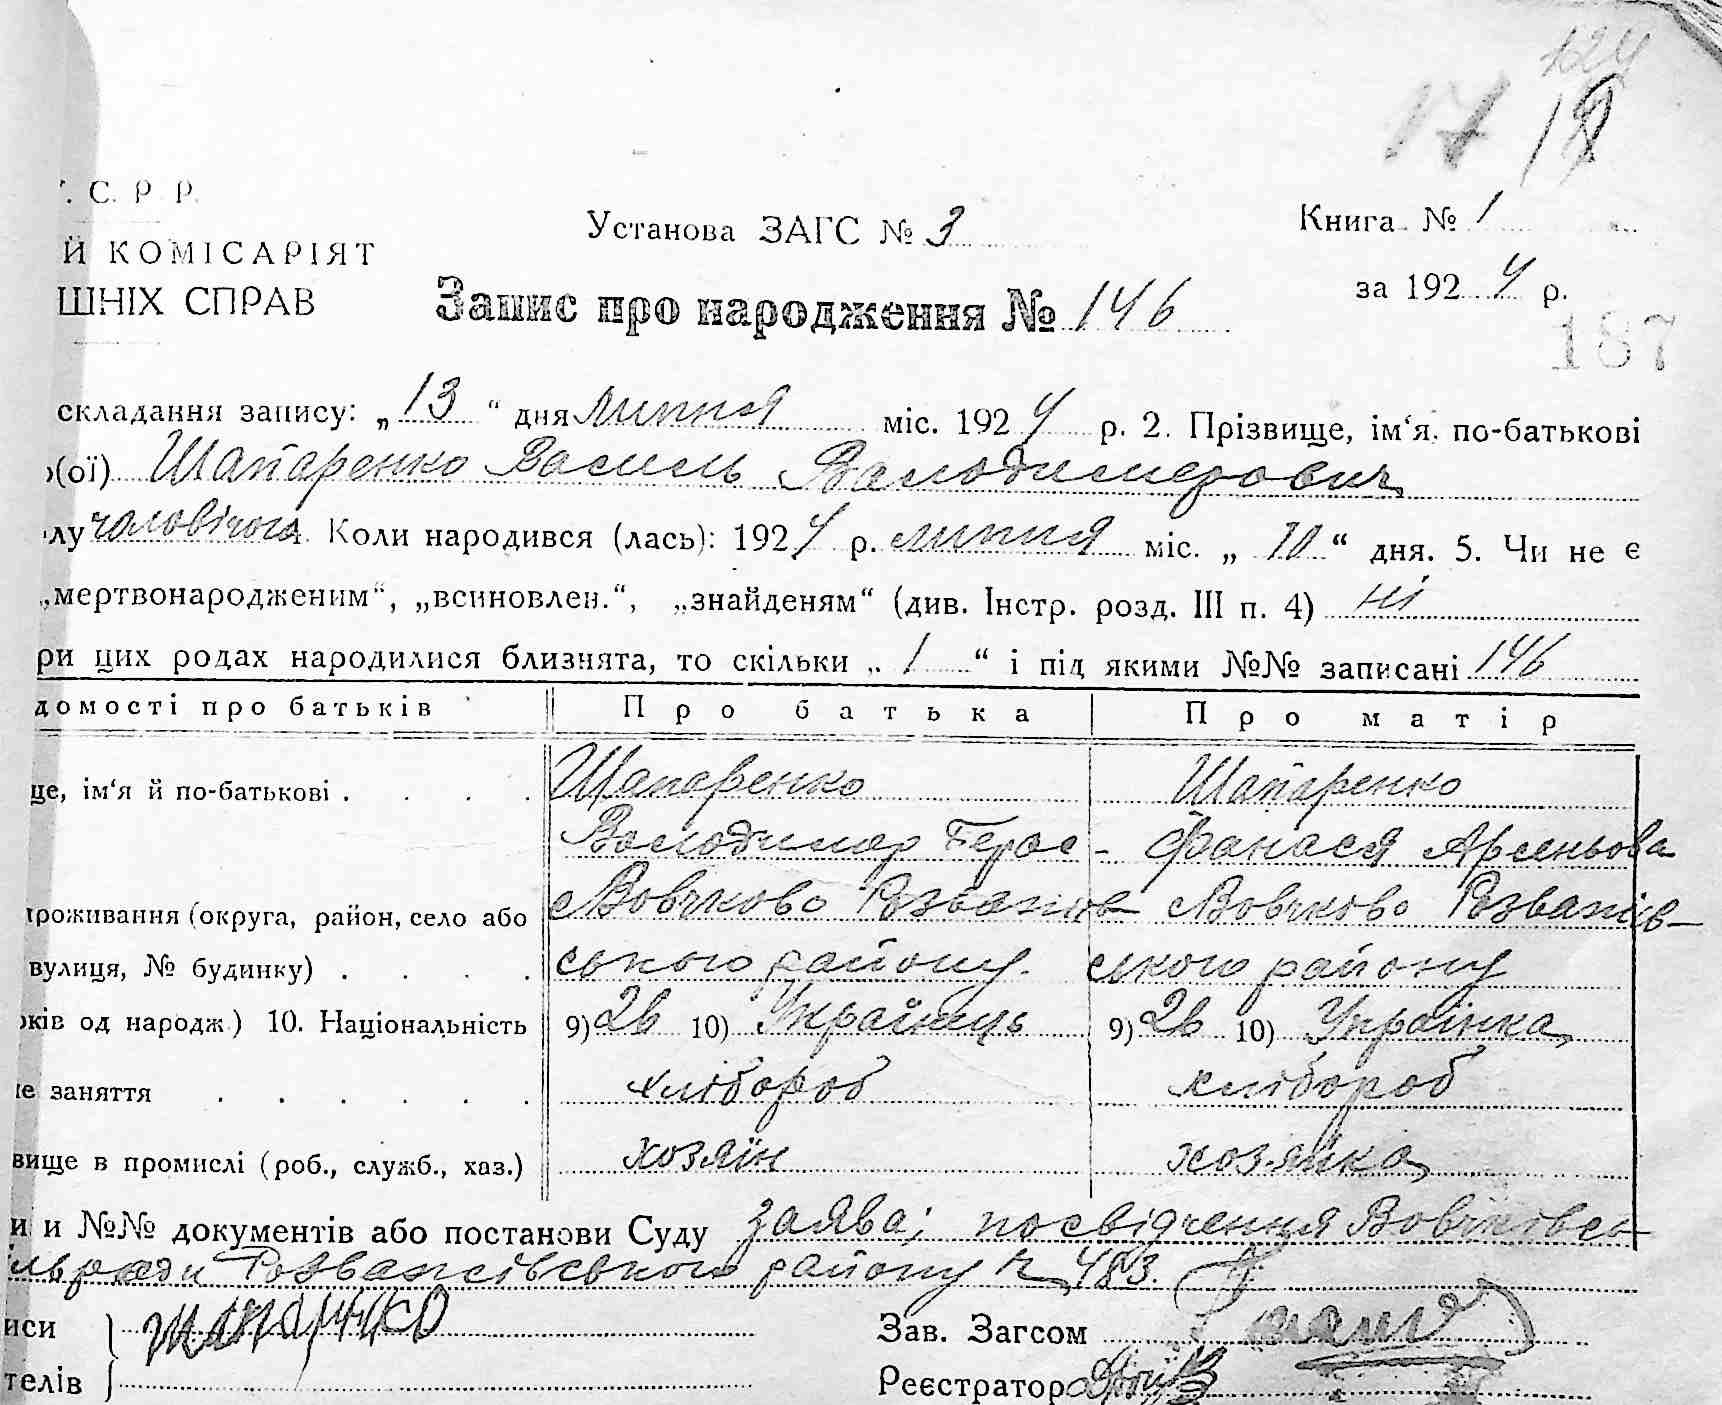 . С. Р. Р.
Й КОМІСАРІЯТ
ШНІХ СПРАВ
Установа ЗАГС № 3
Книга № 1
за 1924 р.
17
187
Запис про народження № 146
складання запису: „13“ дня липня міс. 1924 р. 2. Прізвище, ім‘я, по-батькові
(ої) Шапаренко Василь Володимерович
лу чоловічого. Коли народився (лась): 1924 р. липня міс. „10“ дня. 5. Чи не є
„мертвонародженим“, „всиновлен.“, „знайденям“ (див. Інстр. розд. III п. 4) ні
ри цих родах народилися близнята, то скільки „1“ і під якими №№ записані 146
домості про батьків Про батька Про матір
це, ім‘я й по-батькові . . . . Шапаренко Шапаренко
Володимер Герас- Фанася Арсеньова
роживання (округа, район, село або Вовчково Розважів- Вовчково Розважів-
вулиця, № будинку) . . . . ського району. ського району
ків од народж.) 10. Національність 9) 26 10) Українець 9) 26 10) Українка
е заняття . . . . . . хлібороб хлібороб
вище в промислі (роб., служб., хаз.) хозяїн хозяйка
и и №№ документів або постанови Суду заява; посвідчення Вовчківсь
льради Розважівського району № 483.
иси Шапаренко Зав. Загсом
телів Реєстратор